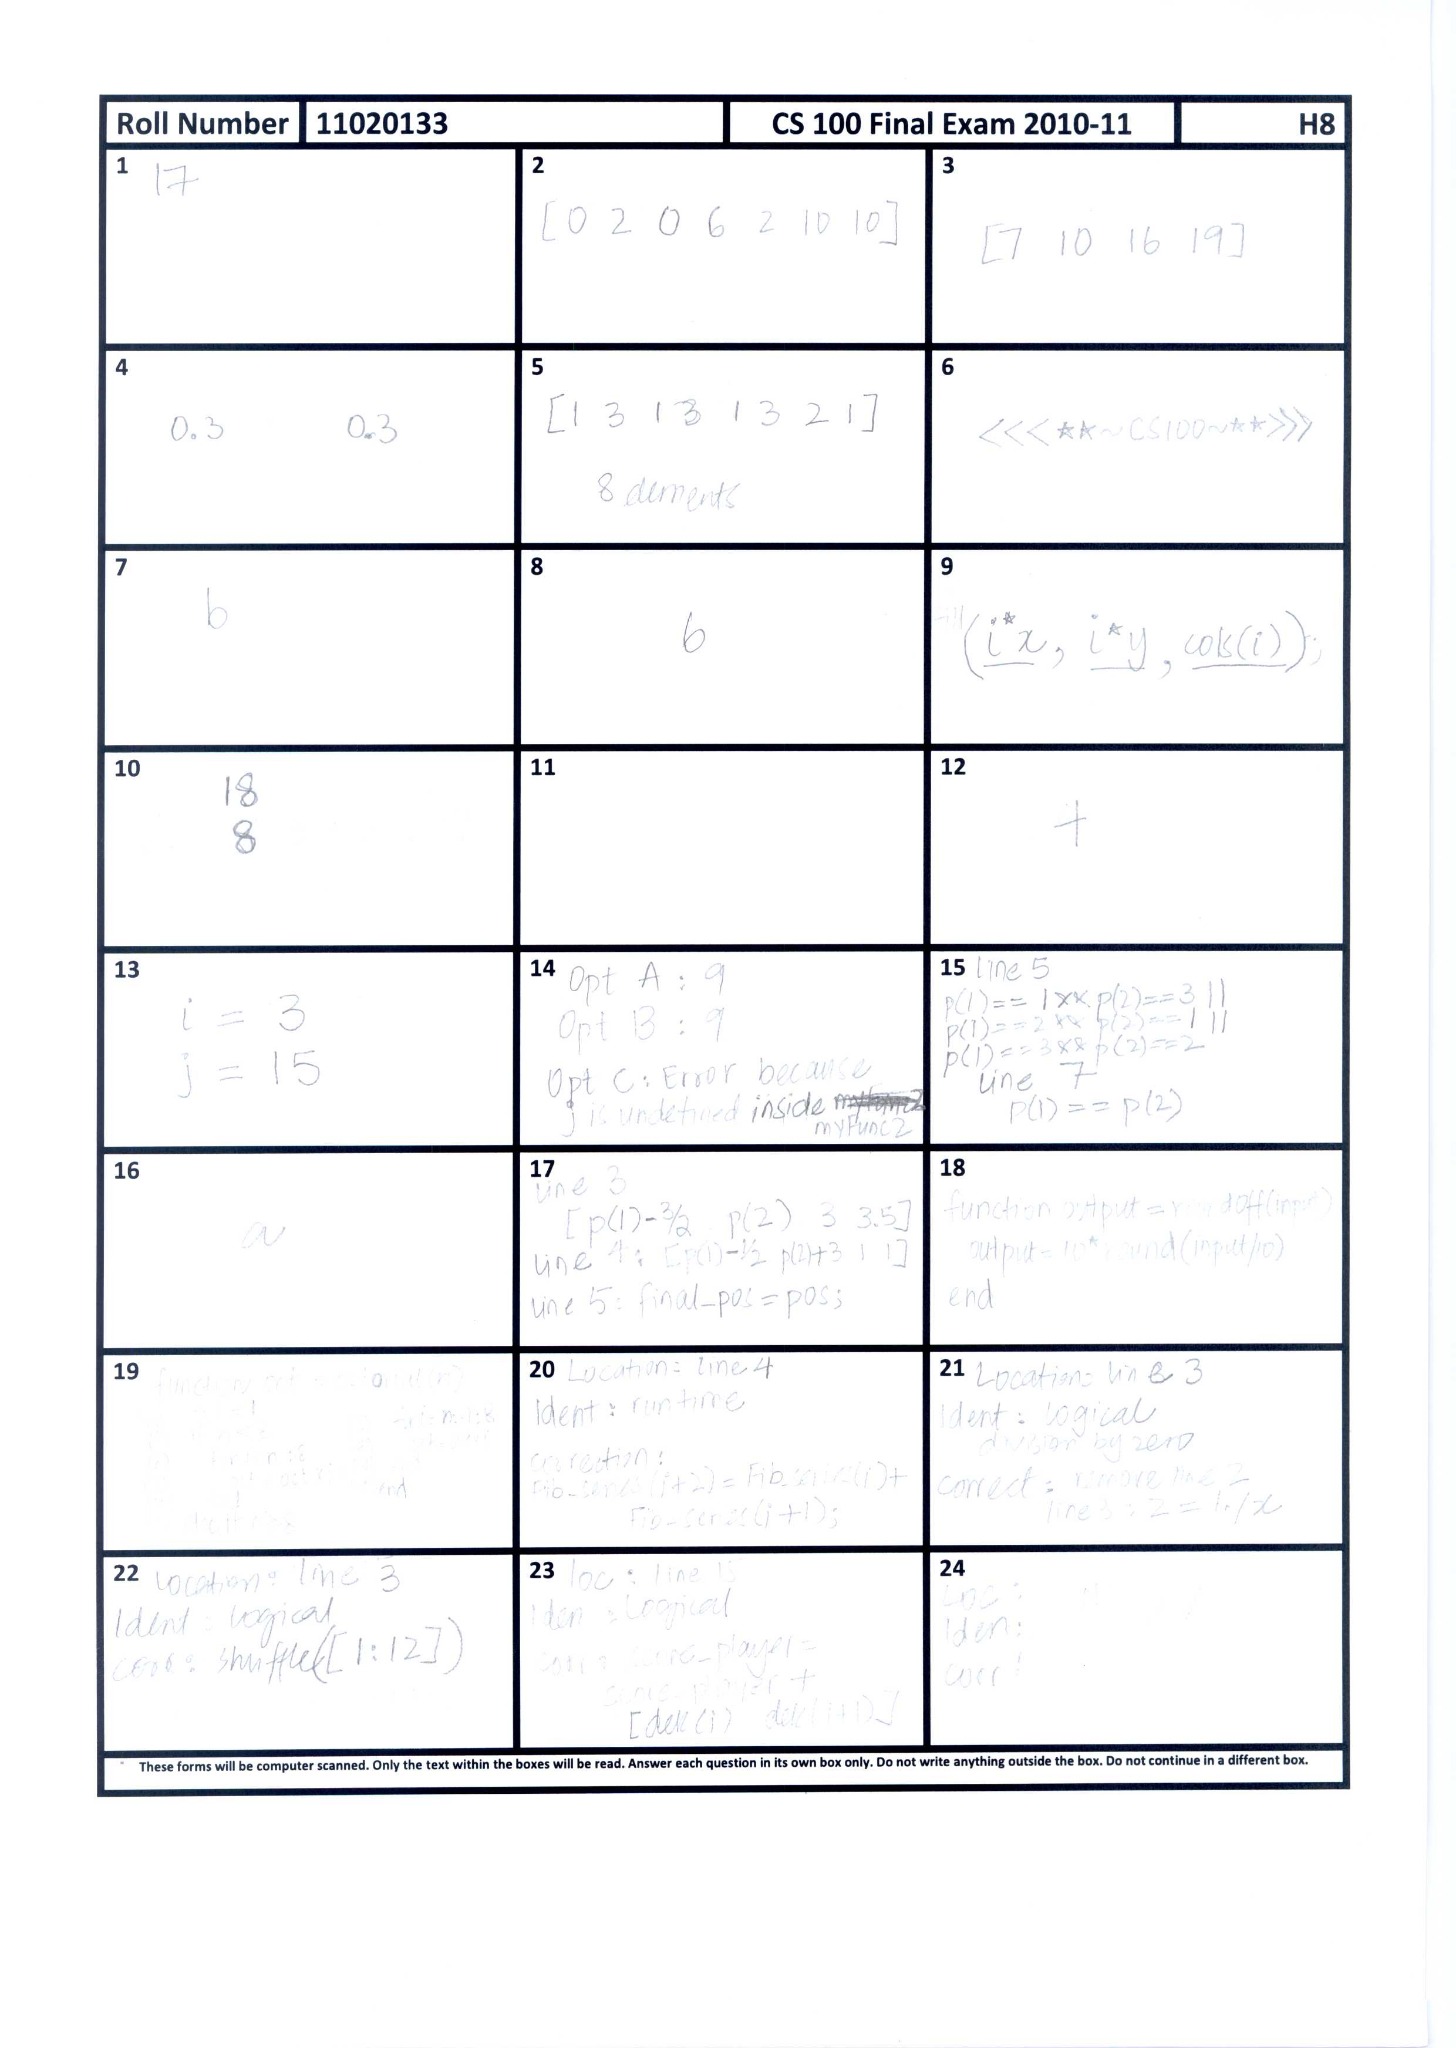 Roll Number 11020133 CS 100 Final Exam 2010-11 H8
1 17
2
[0 2 0 6 2 10 10]
3
[7 10 16 19]
4
0.3 0.3
5
[1 3 1 3 1 3 2 1]
8 elements
6
<<<**~CS100~**>>>
7
b
8
6
9
(i*x, i*y, cols(i));
10
18
8
11
12
+
13
i = 3
j = 15
14 Opt A : 9
Opt B : 9
Opt C : Error because
j is undefined inside
myFunc2
15 line 5
p(1)== 1 && p(2)==3 ||
p(1)==2 && p(2)==1 ||
p(1)==3 && p(2)==2
line 7
p(1) == p(2)
16
a
17
line 3
[p(1)-3/2 p(2) 3 3.5]
line 4: [p(1)-1/2 p(2)+3 1 1]
line 5: final_pos = pos;
18
function output = roundoff(input)
output = 10*round(input/10)
end
19
end
20 Location: line 4
Ident : runtime
correction:
Fib_series(i+2) = Fib_series(i)+
Fib_series(i+1);
21 Location: line 3
Ident : logical
division by zero
correct : remove line 2
line 3 : z = 1./x
22 Location: line 3
Ident : Logical
corr : shuffle([1:12])
23 loc : line
Iden : Logical
corr : score_player =
score_player +
[dek(i) dek(i+1)]
24
Loc :
Iden:
corr :
These forms will be computer scanned. Only the text within the boxes will be read. Answer each question in its own box only. Do not write anything outside the box. Do not continue in a different box.